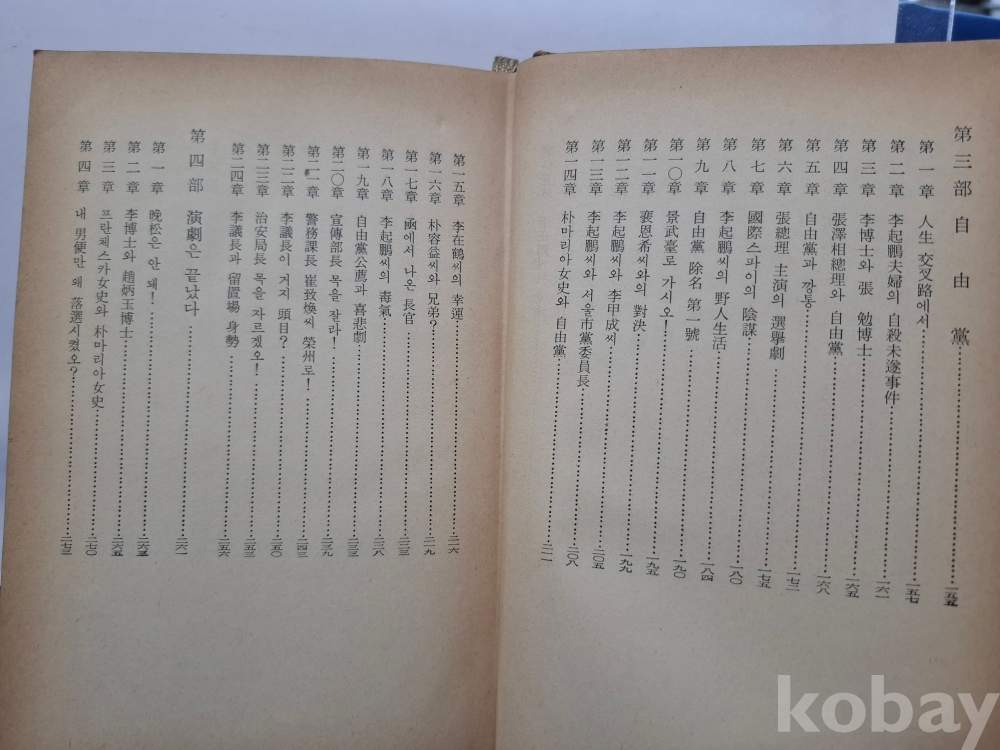 第三部 自由黨……一五五
第一章 人生 交叉路에서……一五七
第二章 李起鵬夫婦의 自殺未遂事件……一六一
第三章 李博士와 張 勉博士……一六五
第四章 張澤相總理와 自由黨……一六八
第五章 自由黨과 깡통……一七二
第六章 張總理 主演의 選擧劇……一七五
第七章 國際스파이의 陰謀……一八〇
第八章 李起鵬씨의 野人生活……一八四
第九章 自由黨 除名 第一號……一九〇
第一〇章 景武臺로 가시오!……一九五
第一一章 裵恩希씨와의 對決……一九九
第一二章 李起鵬씨와 李甲成씨……二〇五
第一三章 李起鵬씨와 서울市黨委員長……二〇八
第一四章 朴마리아女史와 自由黨……二一一
第一五章 李在鶴씨의 幸運……二一六
第一六章 朴容益씨와 兄弟?……二一九
第一七章 函에서 나온 長官……二二三
第一八章 李起鵬씨의 毒氣……二二八
第一九章 自由黨公薦과 喜悲劇……二三三
第二〇章 宣傳部長 목을 잘라!……二三九
第二一章 警務課長 崔致煥씨 榮州로!……二四三
第二二章 李議長이 거지 頭目?……二五〇
第二三章 治安局長 목을 자르겠오!……二五三
第二四章 李議長과 留置場 身勢……二五六
第四部 演劇은 끝났다……二六一
第一章 晩松은 안 돼!……二六三
第二章 李博士와 趙炳玉博士……二六五
第三章 프란체스카女史와 朴마리아女史……二七〇
第四章 내 男便만 왜 落選시켰오?……二七三
kobay